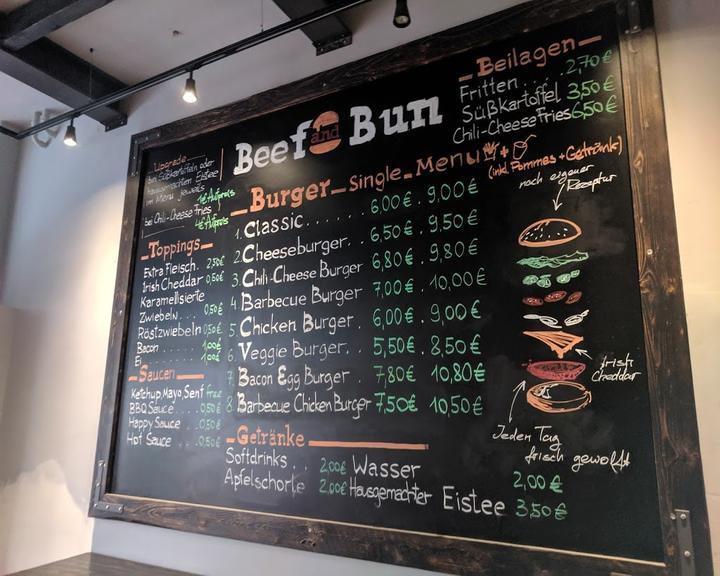 Beef and Bun
Upgrade
von Süßkartoffeln oder
Hausgemachten Eistee
im Menü jeweils
1€ Aufpreis
bei Chili-Cheese Fries
4€ Aufpreis
Toppings
Extra Fleisch. 2,50€
Irish Cheddar 0,50€
Karamellisierte
Zwiebeln... 0,50€
Röstzwiebeln 0,50€
Bacon..... 1,00€
Ei...... 1,00€
Saucen
Ketchup, Mayo, Senf free
BBQ Sauce... 0,50€
Happy Sauce.. 0,50€
Hot Sauce... 0,50€
Burger Single Menü + (inkl. Pommes + Getränke)
1. Classic...... 6,00€. 9,00€
2. Cheeseburger.. 6,50€. 9,50€
3. Chili-Cheese Burger 6,80€. 9,80€
4 Barbecue Burger 7,00€. 10,00€
5 Chicken Burger. 6,00€. 9,00€
6. Veggie Burger... 5,50€. 8,50€
7. Bacon Egg Burger. 7,80€ 10,80€
8 Barbecue Chicken Burger 7,50€ 10,50€
Getränke
Softdrinks.. 2,00€ Wasser 2,00€
Apfelschorle 2,00€ Hausgemachter Eistee 3,50€
Beilagen
Fritten.... 2,70€
Süßkartoffel. 3,50€
Chili-Cheese Fries 6,50€
nach eigener
Rezeptur
Irish
Cheddar
Jeden Tag
frisch gewolft